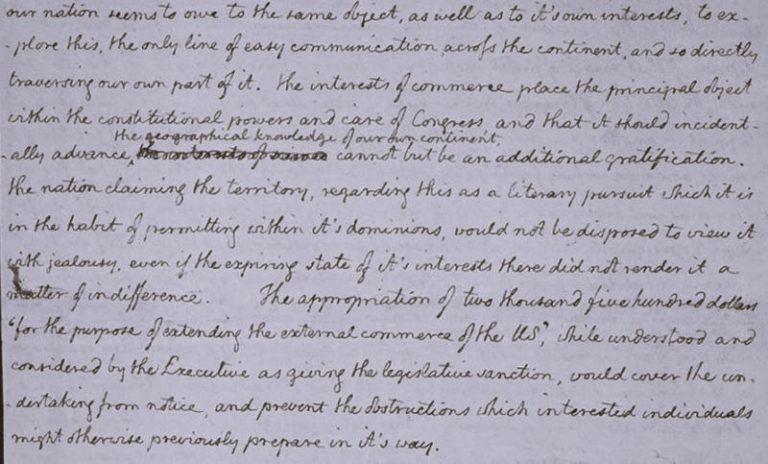 our nation seems to owe to the same object, as well as to it's own interests, to ex-
-plore this, the only line of easy communication across the continent, and so directly
traversing our own part of it. the interests of commerce place the principal object
within the constitutional powers and care of Congress, and that it should incident-
the geographical knowledge of our own continent,
-ally advance cannot but be an additional gratification.
the nation claiming the territory, regarding this as a literary pursuit which it is
in the habit of permitting within it's dominions, would not be disposed to view it
with jealousy, even if the expiring state of it's interests there did not render it a
matter of indifference. The appropriation of two thousand five hundred dollars
'for the purpose of extending the external commerce of the US,' while understood and
considered by the Executive as giving the legislative sanction, would cover the un-
-dertaking from notice, and prevent the obstructions which interested individuals
might otherwise previously prepare in it's way.